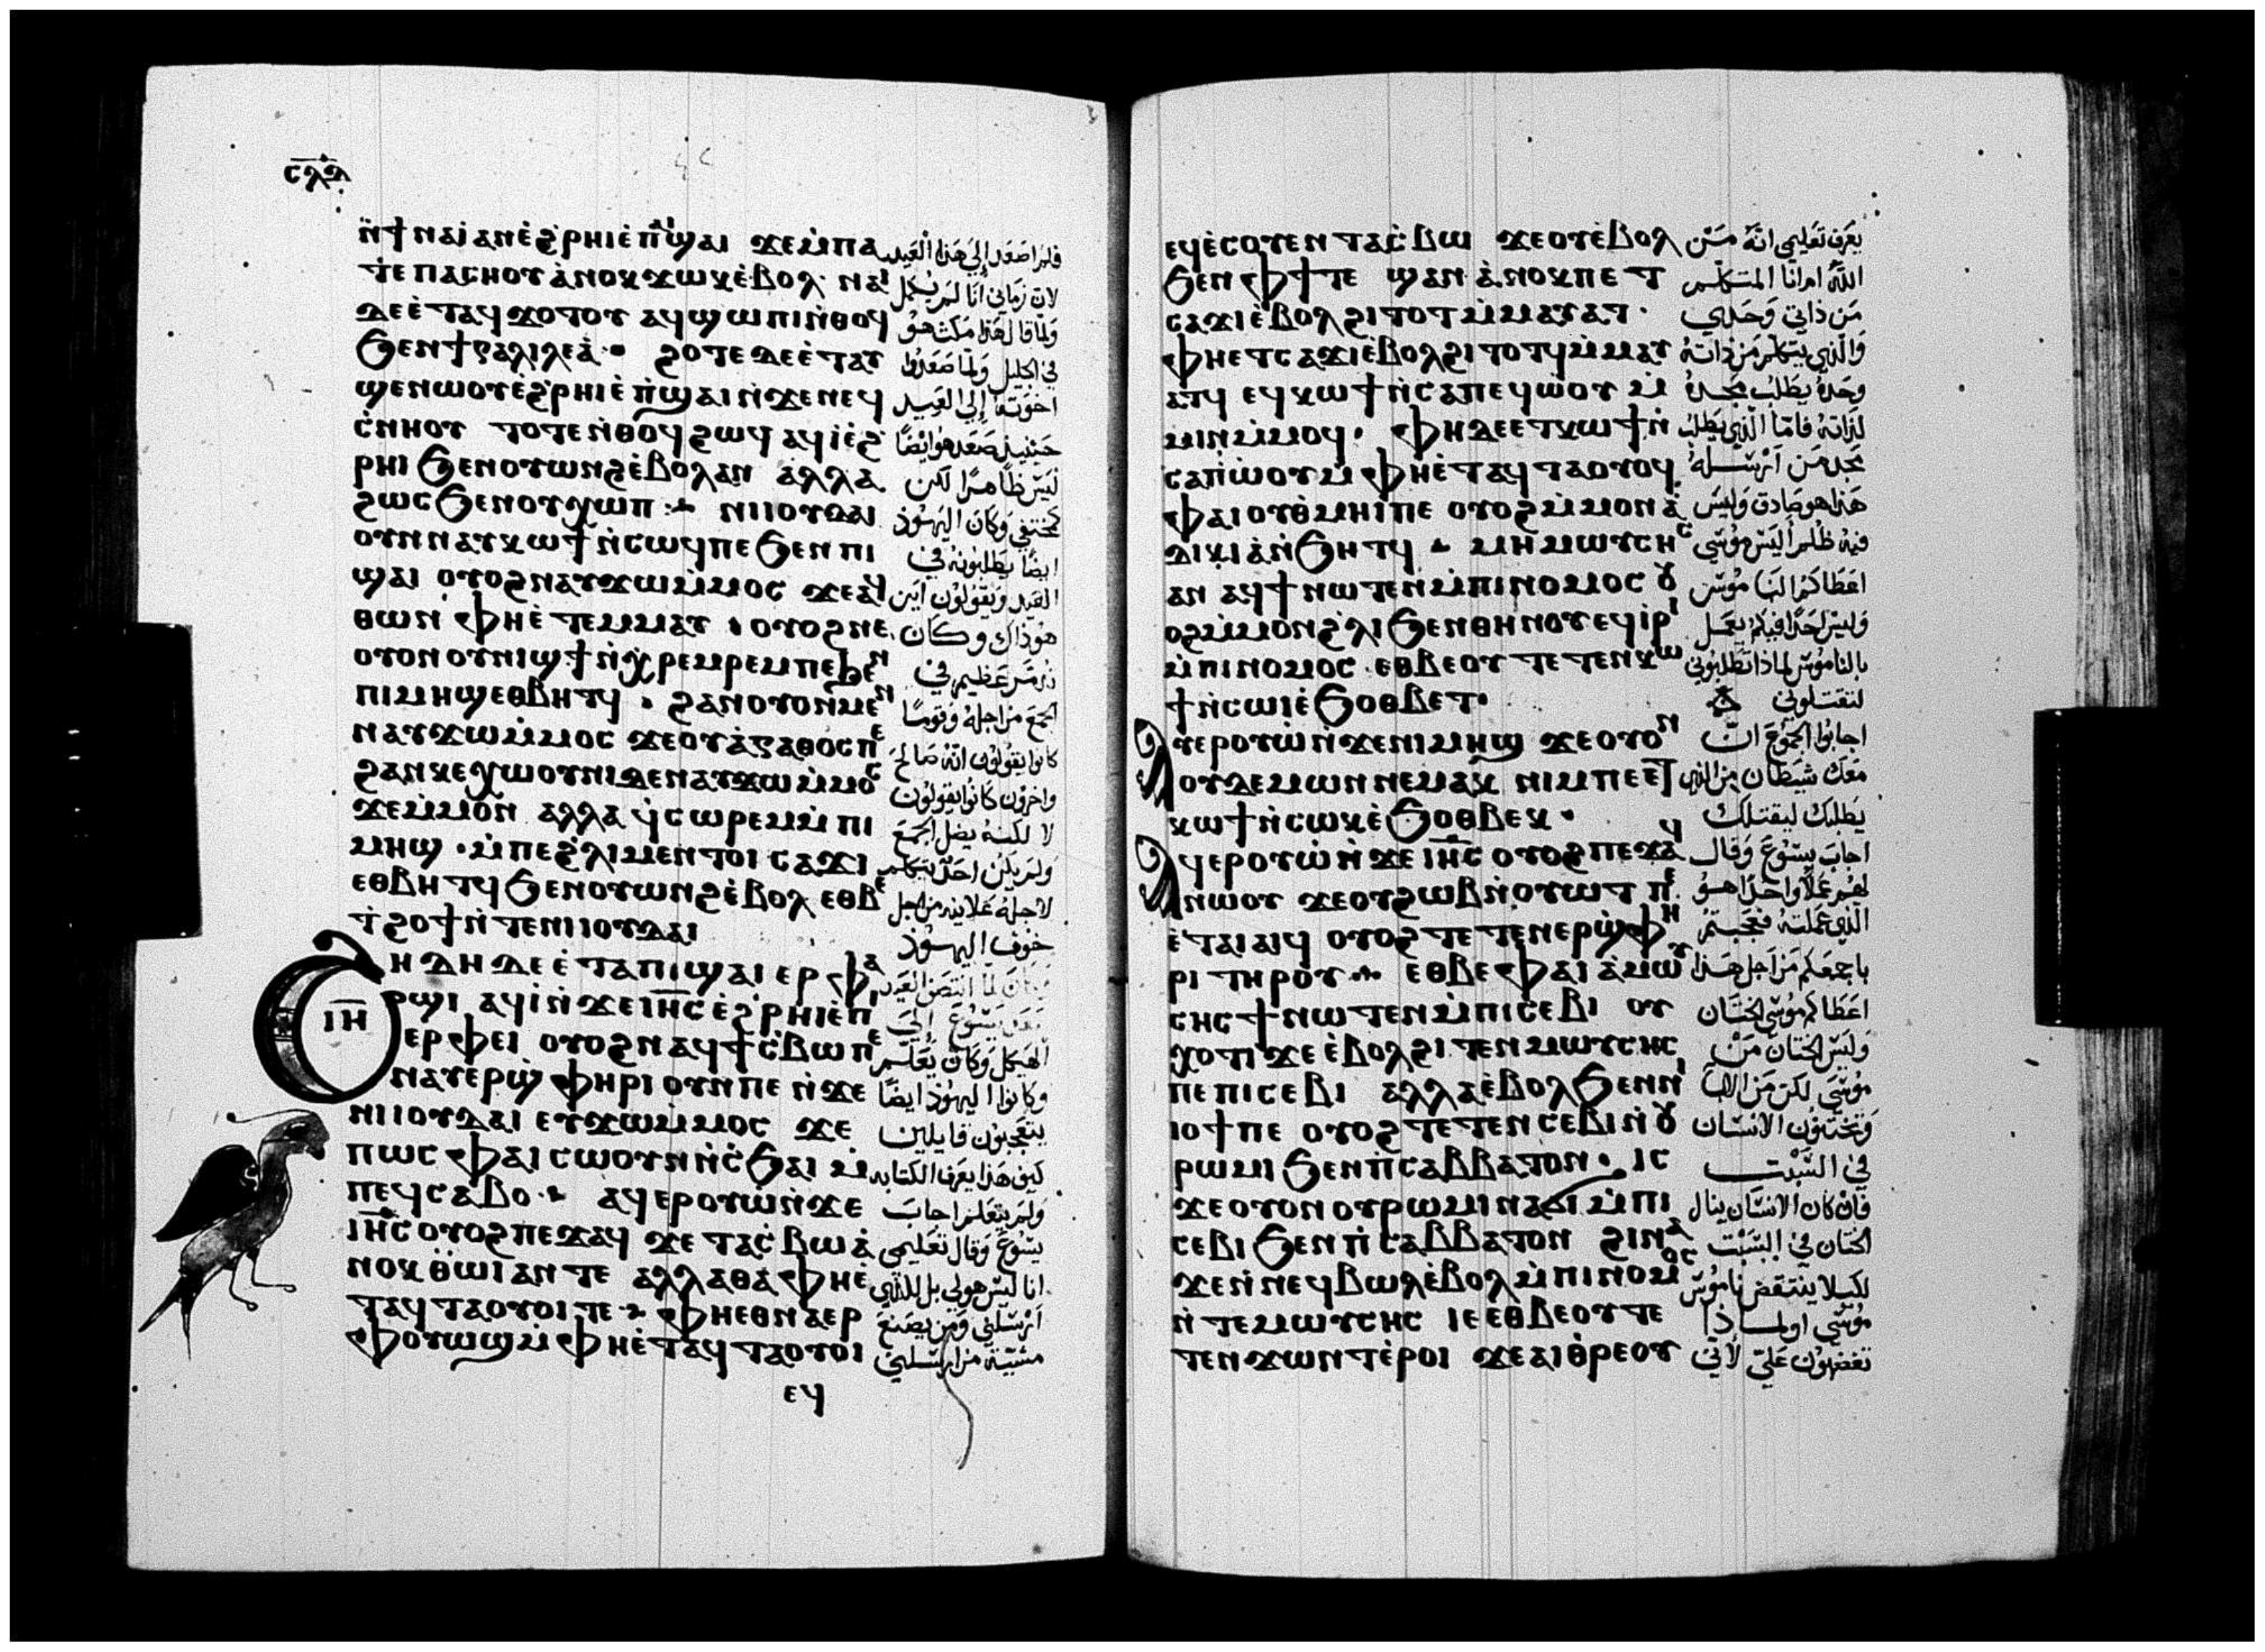 ⲥⲗⲇ
ⲛ̀ϯⲛⲁⲓ̀ⲁⲛⲉ̀ϩ̀ⲣⲏⲓⲉ̀ⲡ̀ϣⲁⲓ ϫⲉⲙ̀ⲡⲁ
ⲧⲉⲡⲁⲥⲏⲟⲩ ⲁ̀ⲛⲟⲕ ϫⲱⲕⲉ̀ⲃⲟⲗ· ⲛⲁⲓ
ⲇⲉⲉ̀ⲧⲁϥϫⲟⲧⲟⲩ ⲁϥϣⲱⲡⲓⲛ̀ⲑⲟϥ
ϧⲉⲛϯⲅⲁⲗⲓⲗⲉⲁ̀· ϩⲟⲧⲉⲇⲉⲉ̀ⲧⲁⲩ
ϣⲉⲛⲱⲟⲩⲉ̀ϩ̀ⲣⲏⲓⲉ̀ⲡ̀ϣⲁⲓⲛ̀ϫⲉⲛⲉϥ
ⲥ̀ⲛⲏⲟⲩ ⲧⲟⲧⲉⲛ̀ⲑⲟϥϩⲱϥ ⲁϥⲓ̀ⲉ̀ϩ
ⲣⲏⲓ ϧⲉⲛⲟⲩⲱⲛϩⲉ̀ⲃⲟⲗⲁⲛ ⲁⲗⲗⲁ
ϩⲱⲥϧⲉⲛⲟⲩⲭⲱⲡ· ⲛⲓⲓⲟⲩⲇⲁⲓ
ⲟⲩⲛⲛⲁⲩⲕⲱϯⲛ̀ⲥⲱϥⲡⲉϧⲉⲛⲡⲓ
ϣⲁⲓ ⲟⲩⲟϩⲛⲁⲩϫⲱⲙ̀ⲙⲟⲥ ϫⲉⲁϥ
ⲑⲱⲛ ⲫⲏⲉ̀ⲧⲉⲙⲙⲁⲩ· ⲟⲩⲟϩⲛⲉ
ⲟⲩⲟⲛⲟⲩⲛⲓϣϯⲛ̀ⲭⲣⲉⲙⲣⲉⲙⲡⲉϧⲉⲛ
ⲡⲓⲙⲏϣⲉⲑⲃⲏⲧϥ· ϩⲁⲛⲟⲩⲟⲛⲙⲉⲛ
ⲛⲁⲩϫⲱⲙ̀ⲙⲟⲥ ϫⲉⲟⲩⲁ̀ⲅⲁⲑⲟⲥⲡⲉ
ϩⲁⲛⲕⲉⲭⲱⲟⲩⲛⲓⲇⲉⲛⲁⲩϫⲱⲙ̀ⲙⲟⲥ
ϫⲉⲙ̀ⲙⲟⲛ ⲁⲗⲗⲁ ϥ̀ⲥⲱⲣⲉⲙⲙ̀ⲡⲓ
ⲙⲏϣ· ⲙ̀ⲡⲉϩ̀ⲗⲓⲙⲉⲛⲧⲟⲓ ⲥⲁϫⲓ
ⲉⲑⲃⲏⲧϥϧⲉⲛⲟⲩⲱⲛϩⲉ̀ⲃⲟⲗ ⲉⲑⲃⲉ
ⲧ̀ϩⲟϯⲛ̀ⲧⲉⲛⲓⲓⲟⲩⲇⲁⲓ
ⲓⲏ
ϩⲏⲇⲏⲇⲉⲉ̀ⲧⲁⲡⲓϣⲁⲓ ⲉⲣ ⲫⲁ
ϣⲓ ⲁϥⲓ̀ⲛ̀ϫⲉⲓⲏⲥ ⲉ̀ϩ̀ⲣⲏⲓⲉ̀ⲡⲓ
ⲉⲣⲫⲉⲓ ⲟⲩⲟϩⲛⲁϥϯⲥ̀ⲃⲱⲡⲉ
ⲛⲁⲩⲉⲣϣ̀ⲫⲏⲣⲓ ⲟⲩⲛⲡⲉ ⲛ̀ϫⲉ
ⲛⲓⲓⲟⲩⲇⲁⲓ ⲉⲩϫⲱⲙ̀ⲙⲟⲥ ϫⲉ
ⲡⲱⲥ ⲫⲁⲓ ⲥⲱⲟⲩⲛⲛ̀ⲥ̀ϧⲁⲓ ⲙ̀
ⲡⲉϥⲥⲁⲃⲟ· ⲁϥⲉⲣⲟⲩⲱ̀ⲛ̀ϫⲉ
ⲓⲏⲥ ⲟⲩⲟϩⲡⲉϫⲁϥ ϫⲉ ⲧⲁⲥ̀ⲃⲱ ⲁ̀
ⲛⲟⲕ ⲑⲱⲓⲁⲛⲧⲉ ⲁⲗⲗⲁⲑⲁ̀ⲫⲏⲉ̀
ⲧⲁϥⲧⲁⲟⲩⲟⲓⲧⲉ· ⲫⲏⲉⲑⲛⲁⲉⲣ
ⲫⲟⲩⲱϣⲙ̀ⲫⲏⲉ̀ⲧⲁϥⲧⲁⲟⲩⲟⲓ
ⲉϥ
فلم اصعد الي هذا العيد
لان زماني انا لم يكمل
ولما قال هذا مكث هو
في الجليل ولما صعدوا
اخوته الي العيد
حينيذ صعد هو ايضًا
ليس ظاهرًا لكن
كمختفي وكان اليهود
ايضًا يطلبونه في
العيد ويقولون اين
هو ذاك وكان
تزمر عظيم في
الجمع من اجله وقومًا
كانوا يقولون انه صالح
واخرون كانوا يقولون
لا لكنه يضل الجمع
ولم يكن احد يتكلم
لاجله علانيه من اجل
خوف اليهود
وكان لما انتصف العيد
صعد يسوع الي
الهيكل وكان يعلم
وكانوا اليهود ايضًا
يتعجبون قايلين
كيف هذا يعرف الكتابه
ولم يتعلم اجاب
يسوع وقال تعليمي
انا ليس هو لي بل للذي
ارسلني ومن يصنع
مشيّة من ارسلني
ⲉϥⲉ̀ⲥⲟⲩⲉⲛ ⲧⲁⲥ̀ⲃⲱ ϫⲉⲟⲩⲉ̀ⲃⲟⲗ
ϧⲉⲛ ⲫϯⲧⲉ ϣⲁⲛ ⲁ̀ⲛⲟⲕⲡⲉⲧ
ⲥⲁϫⲓⲉ̀ⲃⲟⲗϩⲓⲧⲟⲧⲙ̀ⲙⲁⲩⲁⲧ·
ⲫⲏⲉⲧⲥⲁϫⲓⲉ̀ⲃⲟⲗϩⲓⲧⲟⲧϥⲙ̀ⲙⲁⲩ
ⲁⲧϥ ⲉϥⲕⲱϯⲛ̀ⲥⲁⲡⲉϥⲱ̀ⲟⲩ ⲙ̀
ⲙⲓⲛⲙ̀ⲙⲟϥ· ⲫⲏⲇⲉⲉⲧⲕⲱϯⲛ̀
ⲥⲁⲡ̀ⲱⲟⲩⲙ̀ⲫⲏⲉ̀ⲧⲁϥⲧⲁⲟⲩⲟϥ
ⲫⲁⲓⲟⲩⲑ̀ⲙⲏⲓⲡⲉ ⲟⲩⲟϩⲙ̀ⲙⲟⲛⲁ̀
ⲇⲓⲕⲓⲁ̀ⲛ̀ϧⲏⲧϥ· ⲙⲏⲙⲱⲩⲥⲏⲥ
ⲁⲛ ⲁϥϯⲛⲱⲧⲉⲛⲙ̀ⲡⲓⲛⲟⲙⲟⲥ ⲟⲩ
ⲟϩⲙ̀ⲙⲟⲛϩ̀ⲗⲓϧⲉⲛⲑⲏⲛⲟⲩⲉϥⲓ̀ⲣⲓ
ⲙ̀ⲡⲓⲛⲟⲙⲟⲥ ⲉⲑⲃⲉⲟⲩ ⲧⲉⲧⲉⲛⲕⲱ
ϯⲛ̀ⲥⲱⲓⲉ̀ϧⲟⲑⲃⲉⲧ·
ⲁⲩⲉⲣⲟⲩⲱ̀ⲛ̀ϫⲉⲛⲓⲙⲏϣ ϫⲉⲟⲩⲟⲛ
ⲟⲩⲇⲉⲙⲱⲛⲛⲉⲙⲁⲕ ⲛⲓⲙⲡⲉⲉⲧ
ⲕⲱϯⲛ̀ⲥⲱⲕⲉ̀ϧⲟⲑⲃⲉⲕ·
ⲁϥⲉⲣⲟⲩⲱ̀ⲛ̀ϫⲉ ⲓⲏⲥ ⲟⲩⲟϩⲡⲉϫⲁϥ
ⲛⲱⲟⲩ ϫⲉⲟⲩϩⲱⲃⲛ̀ⲟⲩⲱⲧ ⲡⲉ
ⲉ̀ⲧⲁⲓⲁⲓϥ ⲟⲩⲟϩ ⲧⲉⲧⲉⲛⲉⲣϣ̀ⲫⲏ
ⲣⲓ ⲧⲏⲣⲟⲩ· ⲉⲑⲃⲉⲫⲁⲓ ⲁ̀ⲙⲱⲩ
ⲥⲏⲥϯⲛⲱⲧⲉⲛⲙ̀ⲡⲓⲥⲉⲃⲓ ⲟⲩ
ⲭⲟⲧⲓϫⲉⲉ̀ⲃⲟⲗϩⲓⲧⲉⲛⲙⲱⲩⲥⲏⲥ
ⲡⲉⲡⲓⲥⲉⲃⲓ ⲁⲗⲗⲁⲉ̀ⲃⲟⲗϧⲉⲛⲛⲓ
ⲓⲟϯⲡⲉ ⲟⲩⲟϩⲧⲉⲧⲉⲛⲥⲉⲃⲓⲛ̀ⲟⲩ
ⲣⲱⲙⲓϧⲉⲛⲡ̀ⲥⲁⲃⲃⲁⲧⲟⲛ· ⲓⲥ
ϫⲉⲟⲩⲟⲛ ⲟⲩⲣⲱⲙⲓⲛⲁϭⲓⲙ̀ⲡⲓ
ⲥⲉⲃⲓ ϧⲉⲛⲡ̀ⲥⲁⲃⲃⲁⲧⲟⲛ ϩⲓⲛⲁ
ϫⲉⲛ̀ⲛⲉϥⲃⲱⲗⲉ̀ⲃⲟⲗⲙ̀ⲡⲓⲛⲟⲙⲟⲥ
ⲛ̀ⲧⲉⲙⲱⲩⲥⲏⲥ ⲓⲉ ⲉⲑⲃⲉⲟⲩⲧⲉ
ⲧⲉⲛϫⲱⲛⲧⲉ̀ⲣⲟⲓ ϫⲉⲁⲓⲑ̀ⲣⲉⲟⲩ
يعرف تعليمي انه من
الله ام انا المتكلم
من ذاتي وحدي
والذي يتكلم من ذاته
وحده يطلب مجده
لذاته فاما الذي يطلب
مجد من ارسله
هذا هو صادق وليس
فيه ظلم اليس موسي
اعطاكم الناموس
وليس احدًا فيكم يعمل
بالناموس لماذا تطلبوني
لتقتلوني
اجابوا الجموع ان
معك شيطان من الذي
يطلبك ليقتلك
اجاب يسوع وقال
لهم عملًا واحدًا هو
الذي عملته فتعجبتم
باجمعكم من اجل هذا
اعطاكم موسي الختان
وليس الختان من
موسي لكن من الابا
وتختنون الانسان
في السبت
فان كان الانسان ينال
الختان في السبت
لكيلا ينتقض ناموس
موسي او لماذا
تغضبون علي لاني